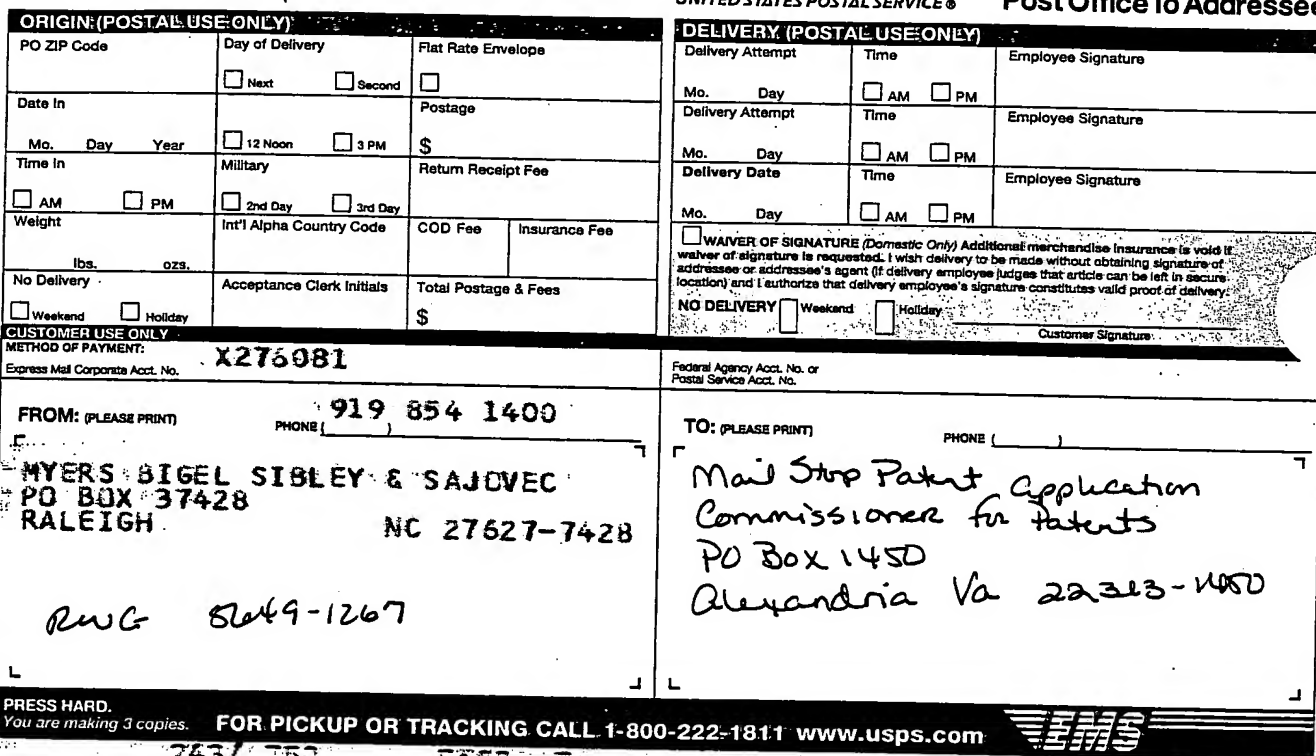 UNITED STATES POSTAL SERVICE® Post Office To Addressee
ORIGIN: (POSTAL USE ONLY)
PO ZIP Code
Day of Delivery
Next Second
Flat Rate Envelope
Date In
Mo. Day Year
12 Noon 3 PM
Postage
$
Time In
AM PM
Military
2nd Day 3rd Day
Return Receipt Fee
Weight
lbs. ozs.
Int'l Alpha Country Code
COD Fee
Insurance Fee
No Delivery
Weekend Holiday
Acceptance Clerk Initials
Total Postage & Fees
$
DELIVERY (POSTAL USE ONLY)
Delivery Attempt Time Employee Signature
Mo. Day AM PM
Delivery Attempt Time Employee Signature
Mo. Day AM PM
Delivery Date Time Employee Signature
Mo. Day AM PM
WAIVER OF SIGNATURE (Domestic Only) Additional merchandise insurance is void if
waiver of signature is requested. I wish delivery to be made without obtaining signature of
addressee or addressee's agent (if delivery employee judges that article can be left in secure
location) and I authorize that delivery employee's signature constitutes valid proof of delivery.
NO DELIVERY Weekend Holiday
Customer Signature
CUSTOMER USE ONLY
METHOD OF PAYMENT:
Express Mail Corporate Acct. No. X276081
Federal Agency Acct. No. or
Postal Service Acct. No.
FROM: (PLEASE PRINT) PHONE ( ) 919 854 1400
MYERS BIGEL SIBLEY & SAJOVEC
PO BOX 37428
RALEIGH NC 27627-7428
RWG 5649-1267
TO: (PLEASE PRINT) PHONE ( )
Mail Stop Patent Application
Commissioner for Patents
PO Box 1450
Alexandria Va 22313-1450
PRESS HARD.
You are making 3 copies.
FOR PICKUP OR TRACKING CALL 1-800-222-1811 www.usps.com
EMS